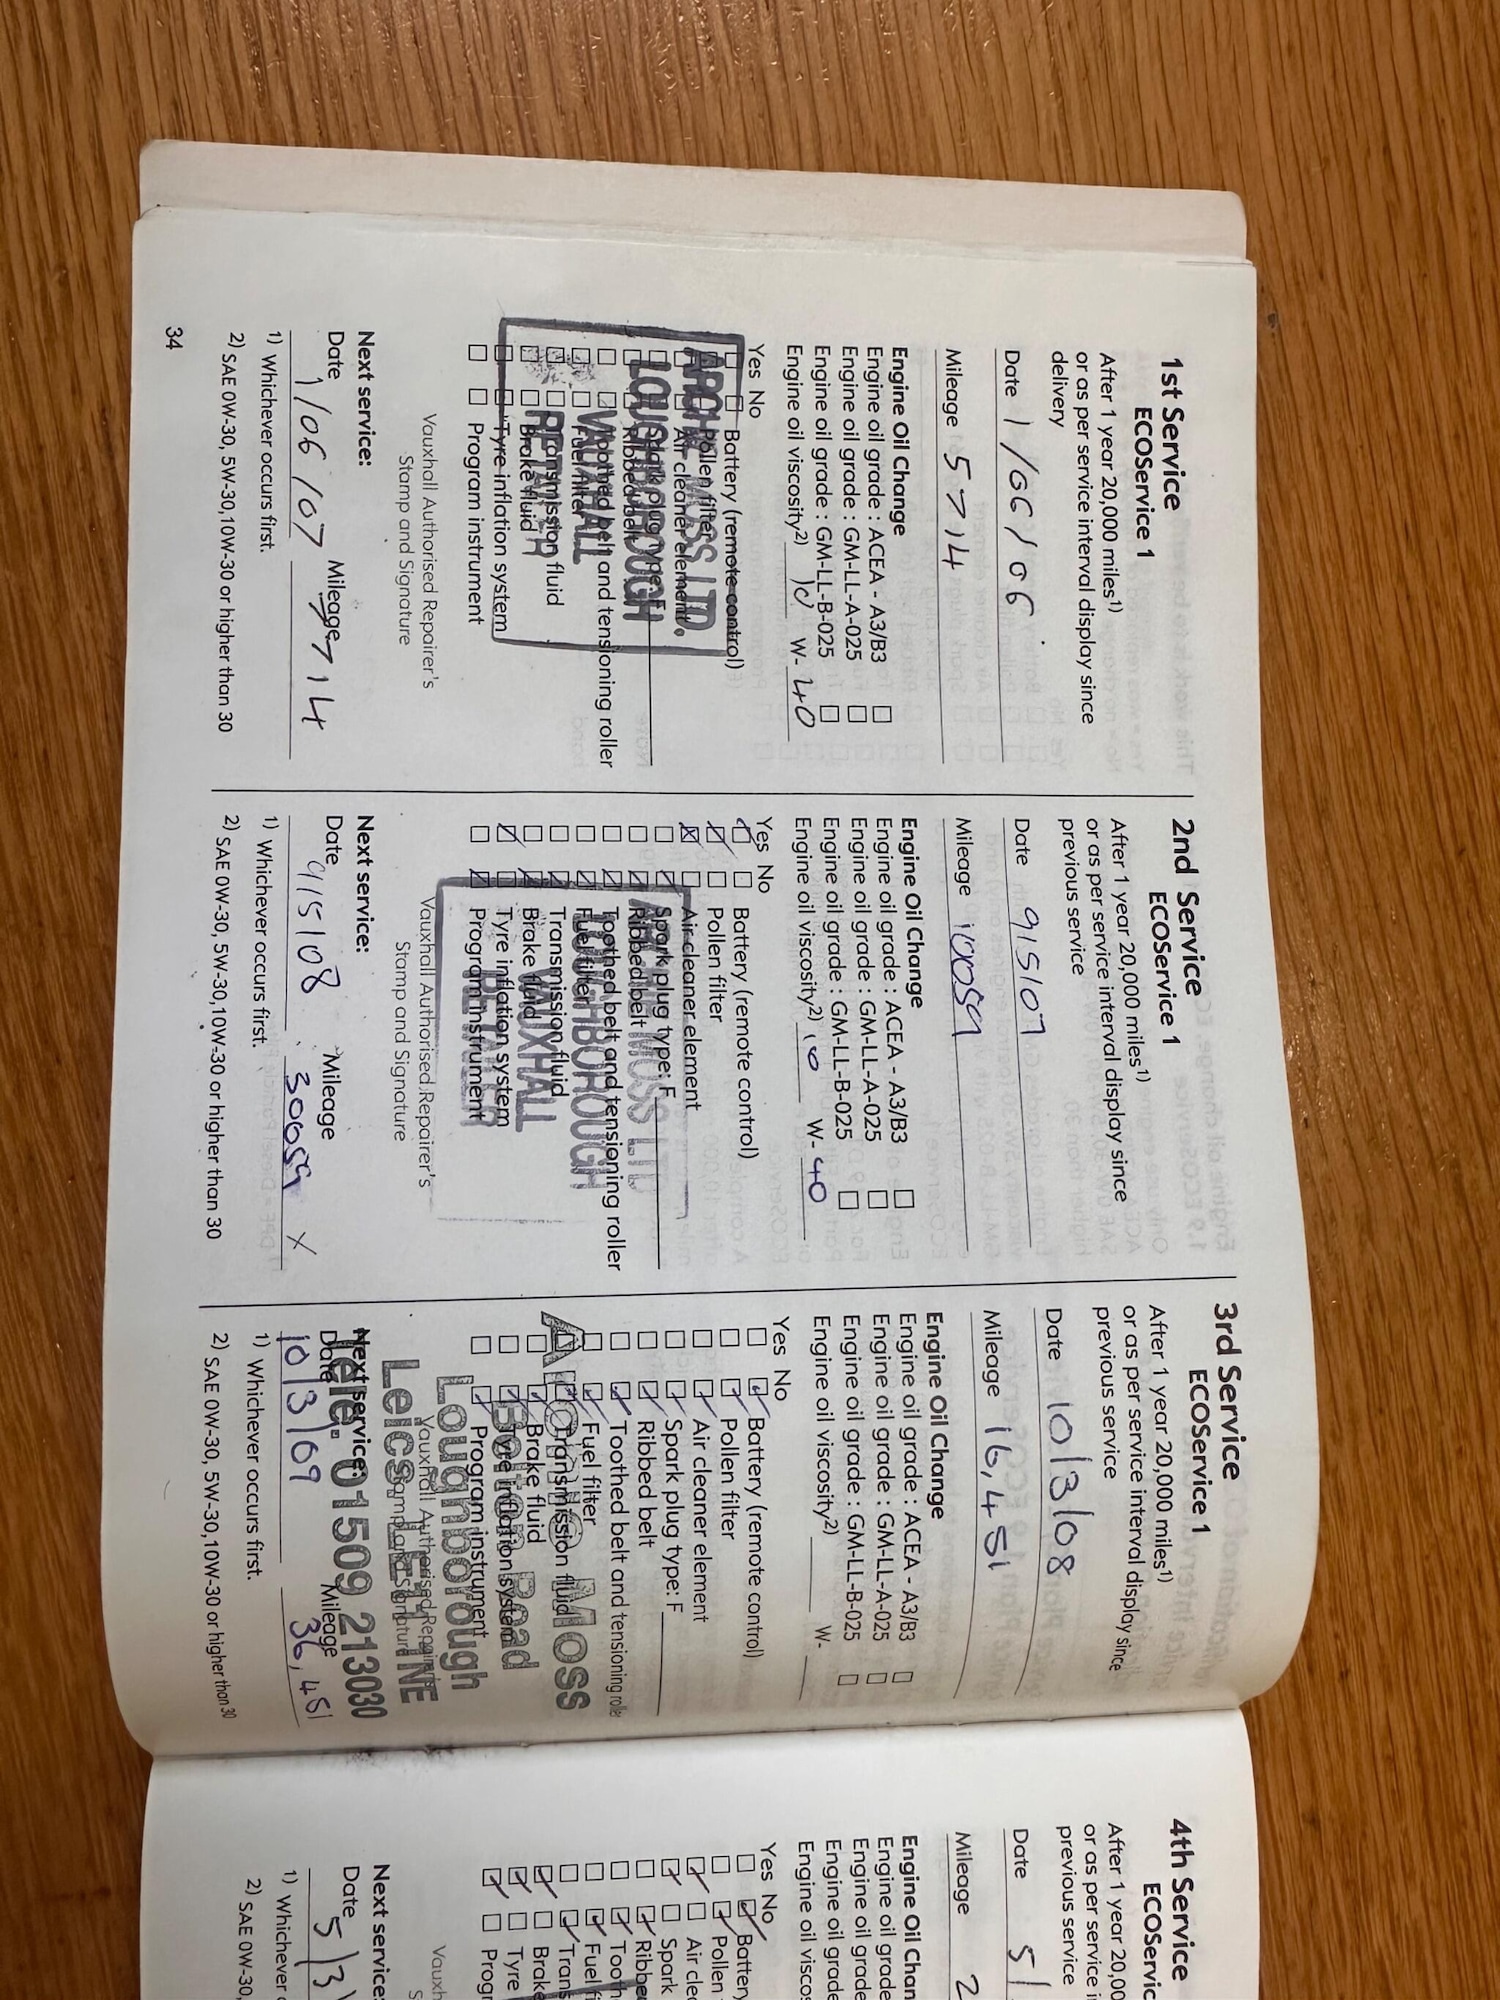 1st Service
ECOService 1
After 1 year 20,000 miles1)
or as per service interval display since
delivery
Date 1/06/06
Mileage 5714
Engine Oil Change
Engine oil grade : ACEA - A3/B3
Engine oil grade : GM-LL-A-025
Engine oil grade : GM-LL-B-025
Engine oil viscosity2) 10 W- 40
Yes No
Battery (remote control)
Pollen filter
Air cleaner element
Spark plug type: F
Ribbed belt
Toothed belt and tensioning roller
Fuel filter
Transmission fluid
Brake fluid
Tyre inflation system
Program instrument
ARCHIE MOSS LTD.
LOUGHBOROUGH
VAUXHALL
RETAILER
Vauxhall Authorised Repairer's
Stamp and Signature
Next service:
Date 1/06/07 Mileage 7714
1) Whichever occurs first.
2) SAE 0W-30, 5W-30,10W-30 or higher than 30
34
2nd Service
ECOService 1
After 1 year 20,000 miles1)
or as per service interval display since
previous service
Date 9/5/07
Mileage 10059
Engine Oil Change
Engine oil grade : ACEA - A3/B3
Engine oil grade : GM-LL-A-025
Engine oil grade : GM-LL-B-025
Engine oil viscosity2) 10 W- 40
Yes No
Battery (remote control)
Pollen filter
Air cleaner element
Spark plug type: F
Ribbed belt
Toothed belt and tensioning roller
Fuel filter
Transmission fluid
Brake fluid
Tyre inflation system
Program instrument
ARCHIE MOSS LTD
LOUGHBOROUGH
VAUXHALL
RETAILER
Vauxhall Authorised Repairer's
Stamp and Signature
Next service:
Date 9/5/08 Mileage 30059 x
1) Whichever occurs first.
2) SAE 0W-30, 5W-30,10W-30 or higher than 30
3rd Service
ECOService 1
After 1 year 20,000 miles1)
or as per service interval display since
previous service
Date 10/3/08
Mileage 16,451
Engine Oil Change
Engine oil grade : ACEA - A3/B3
Engine oil grade : GM-LL-A-025
Engine oil grade : GM-LL-B-025
Engine oil viscosity2) W-
Yes No
Battery (remote control)
Pollen filter
Air cleaner element
Spark plug type: F
Ribbed belt
Toothed belt and tensioning roller
Fuel filter
Transmission fluid
Brake fluid
Tyre inflation system
Program instrument
Archie Moss
Belton Road
Loughborough
Leics LE11 1NE
Tele: 01509 213030
Vauxhall Authorised Repairer's
Stamp and Signature
Next service:
Date 10/3/09 Mileage 36,451
1) Whichever occurs first.
2) SAE 0W-30, 5W-30,10W-30 or higher than 30
4th Service
ECOServic
After 1 year 20,00
or as per service i
previous service
Date 5/
Mileage 2
Engine Oil Chan
Engine oil grade
Engine oil grade
Engine oil grade
Engine oil viscos
Yes No
Battery
Pollen
Air clea
Spark
Ribbe
Tooth
Fuel fi
Trans
Brake
Tyre
Progr
Vauxh
S
Next service:
Date 5/3/
1) Whichever
2) SAE 0W-30,